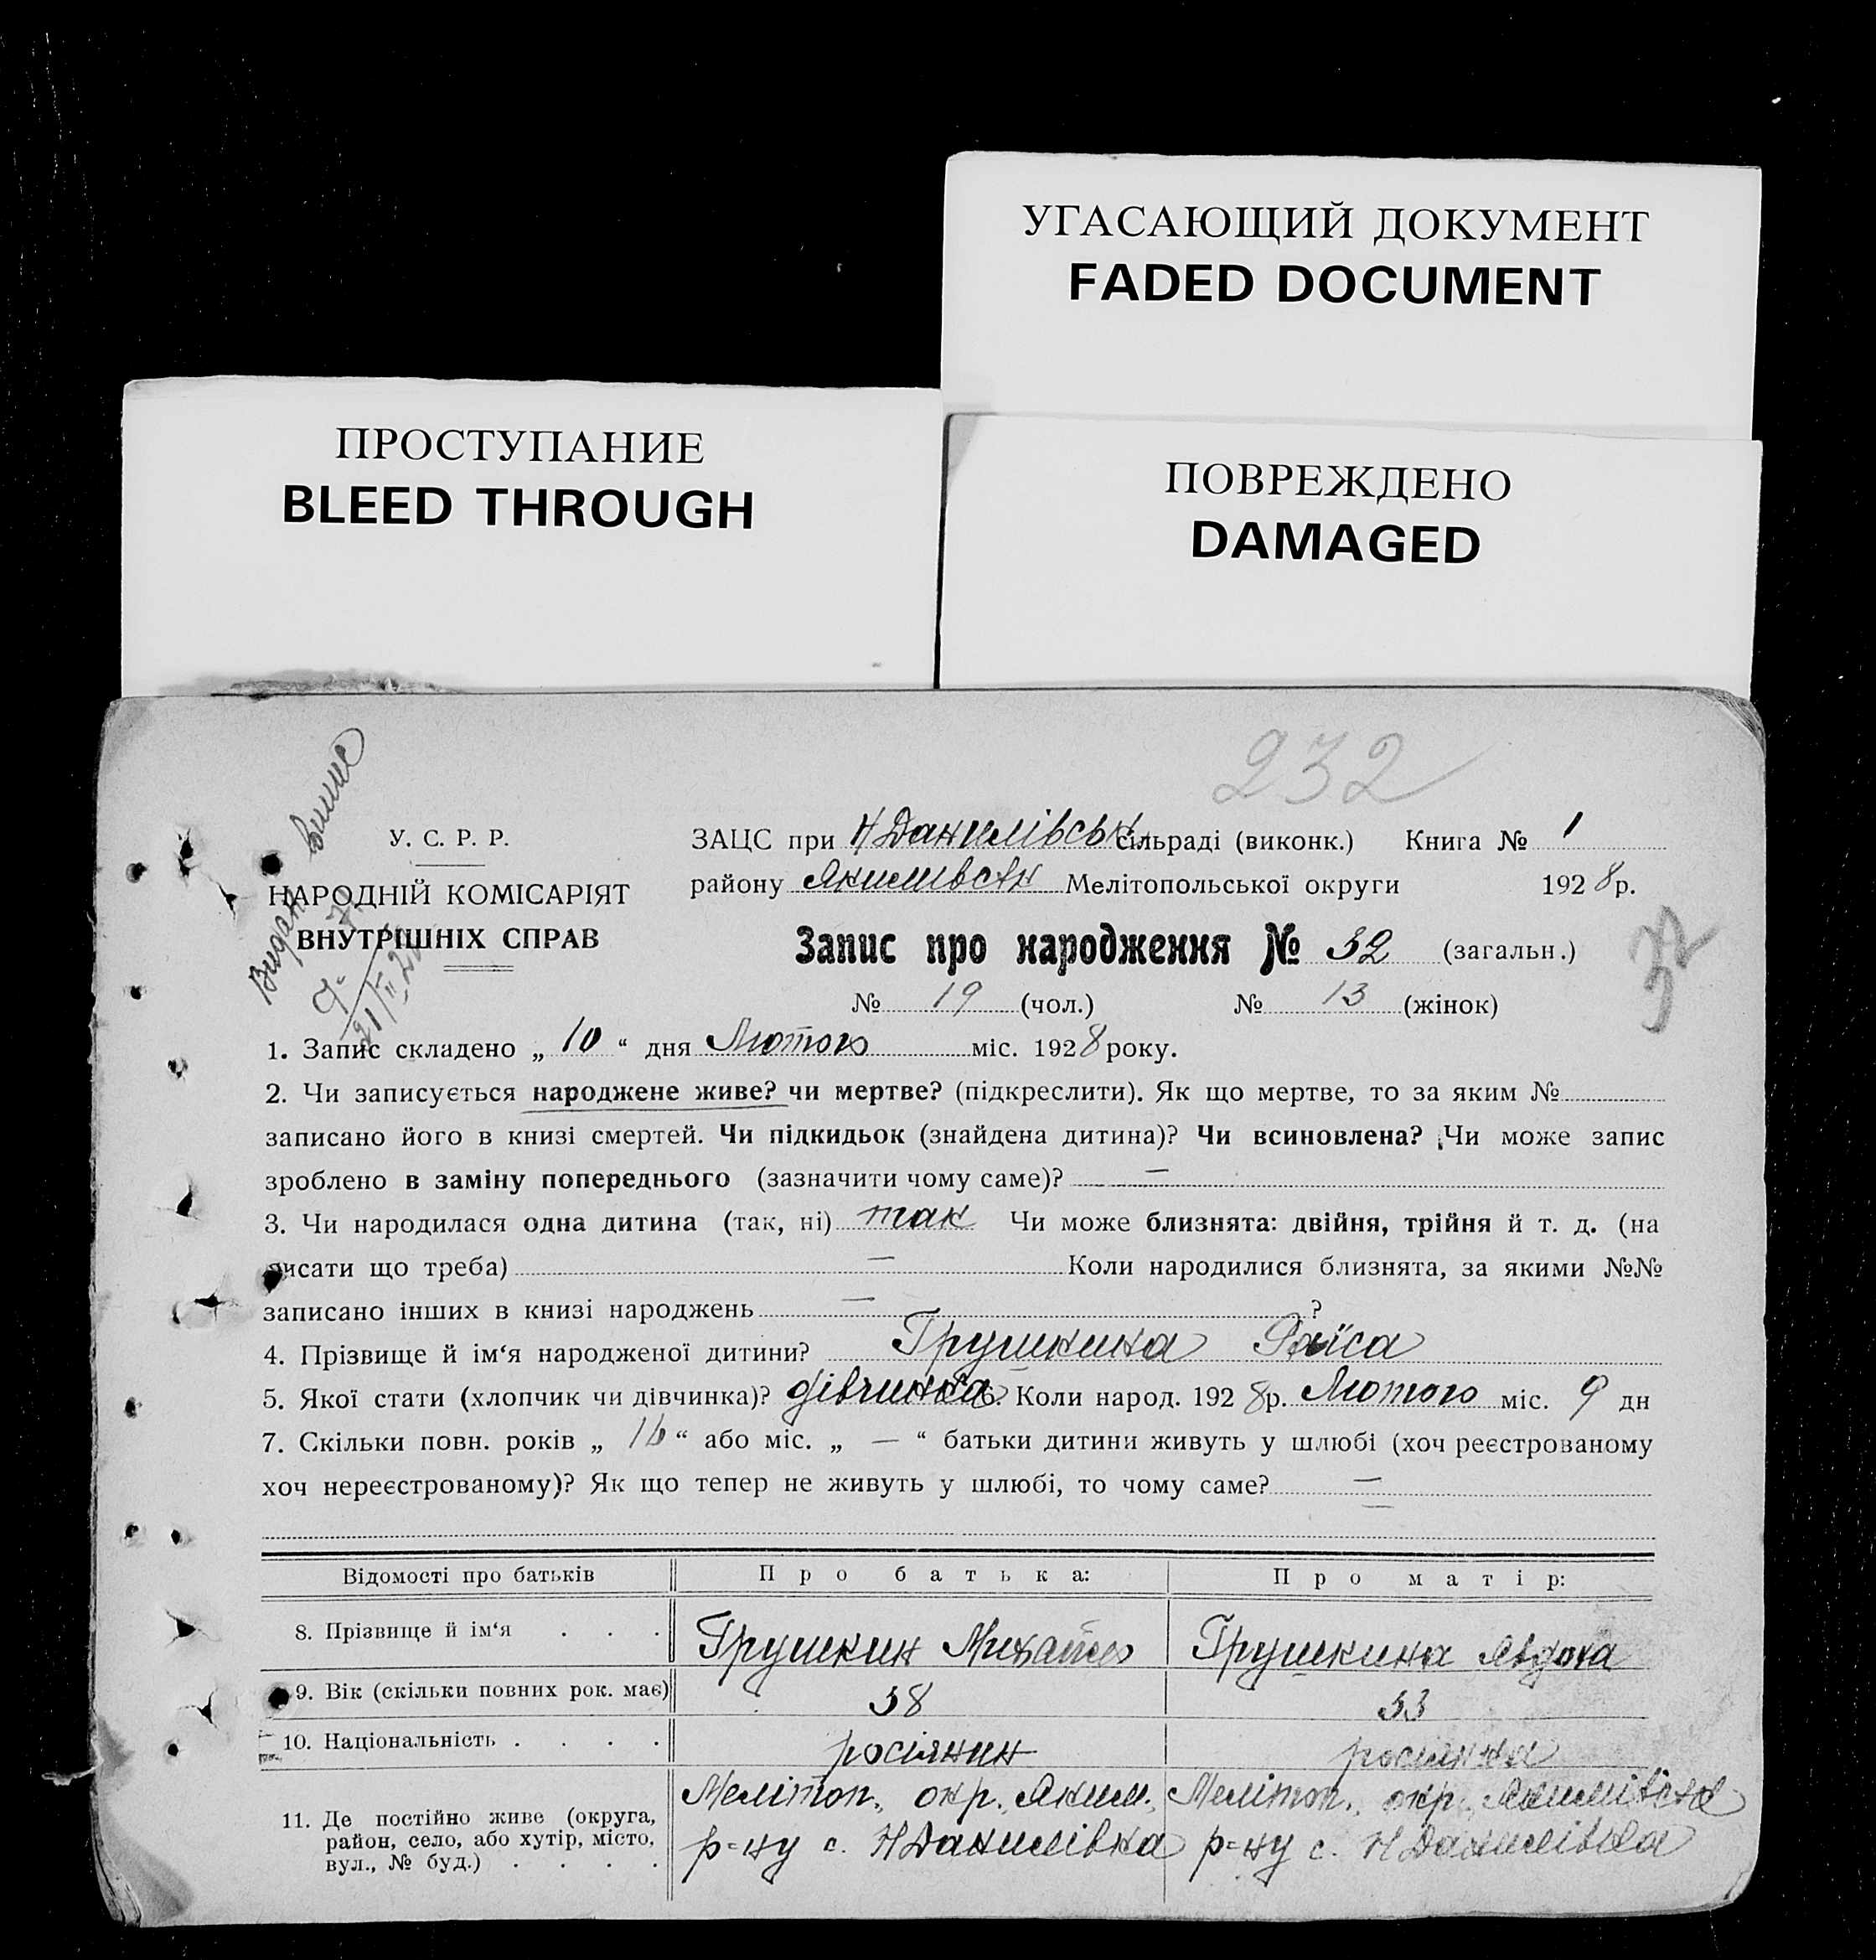 УГАСАЮЩИЙ ДОКУМЕНТ
FADED DOCUMENT
ПРОСТУПАНИЕ
BLEED THROUGH
ПОВРЕЖДЕНО
DAMAGED
232
У. С. Р. Р.
НАРОДНІЙ КОМІСАРІЯТ
ВНУТРІШНІХ СПРАВ
ЗАЦС при Н Данилівськ сільраді (виконк.) Книга № 1
району Якимівськ Мелітопольської округи 1928 р.
Запис про народження № 32 (загальн.)
32
№ 19 (чол.) № 13 (жінок)
1. Запис складено „ 10 “ дня Лютого міс. 1928 року.
2. Чи записується народжене живе? чи мертве? (підкреслити). Як що мертве, то за яким №
записано його в книзі смертей. Чи підкидьок (знайдена дитина)? Чи всиновлена? Чи може запис
зроблено в заміну попереднього (зазначити чому саме)? —
3. Чи народилася одна дитина (так, ні) так Чи може близнята: двійня, трійня й т. д. (на
писати що треба) — Коли народилися близнята, за якими №№
записано інших в книзі народжень — ?
4. Прізвище й ім‘я народженої дитини? Грушкина Раїса
5. Якої стати (хлопчик чи дівчинка)? дівчинка 6. Коли народ. 1928 р. Лютого міс. 9 дн
7. Скільки повн. років „ 16 “ або міс. „ — “ батьки дитини живуть у шлюбі (хоч реєстрованому
хоч нереєстрованому)? Як що тепер не живуть у шлюбі, то чому саме? —
Відомості про батьків Про батька: Про матір:
8. Прізвище й ім‘я . . . Грушкин Михайло Грушкина Явдоха
9. Вік (скільки повних рок. має) 38 33
10. Національність . . . . росіянин росіянка
11. Де постійно живе (округа, район, село, або хутір, місто, вул., № буд.) . . . .
Мелітоп. окр. Яким.
р=ну с. Н Данилівка
Мелітоп. окр. Якимівськ
р=ну с. Н Данилівка